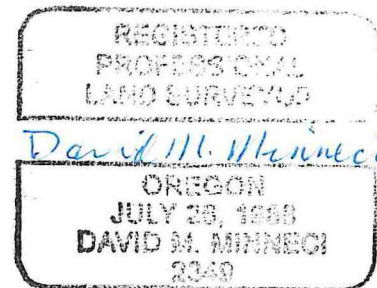 REGISTERED
PROFESSIONAL
LAND SURVEYOR
David M. Minneci
OREGON
JULY 26, 1988
DAVID M. MINNECI
2349